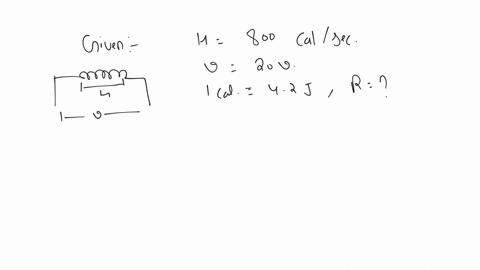 Given:-
H = 800 Cal/sec.
v = 20v.
1 cal. = 4.2 J , R = ?
H
v